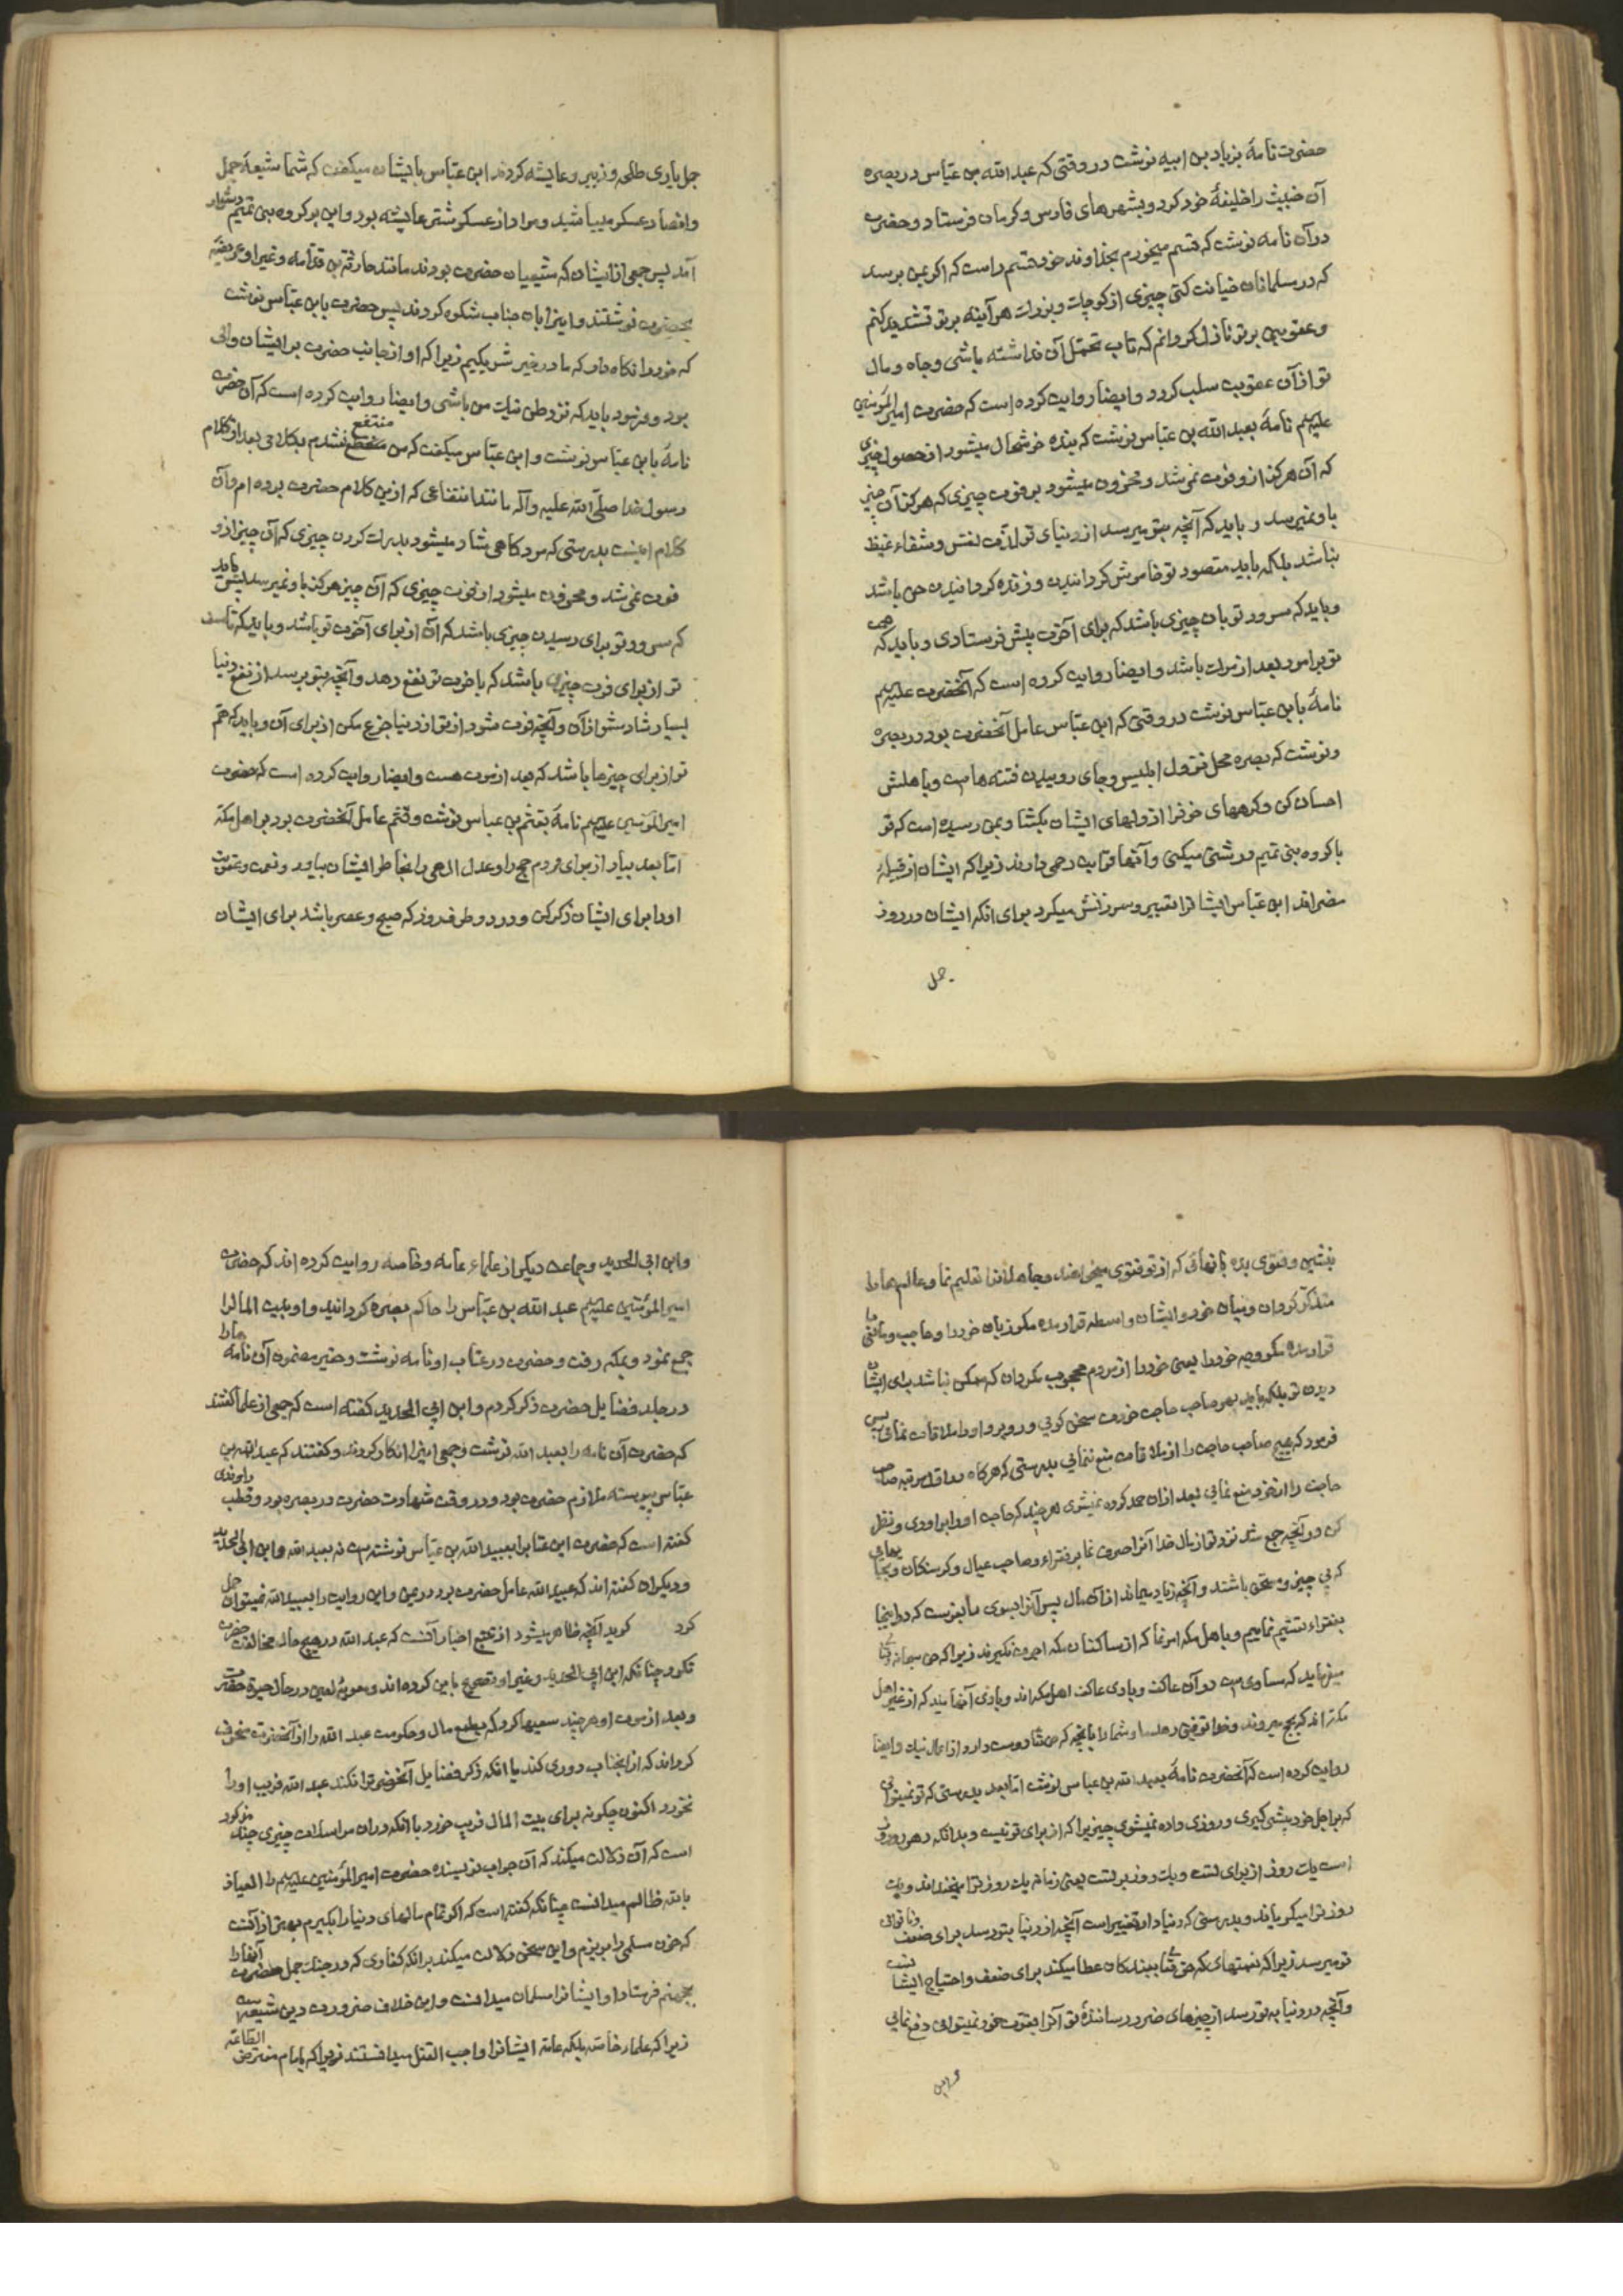 حضرت نامهٔ بزیاد بن ابیه نوشت در وقتی که عبد الله بن عباس در بصره
آن خبیث را خلیفهٔ خود کرد و بشهرهای فارس و کرمان فرستاد و حضرت
در آن نامه نوشت که قسم میخورم بخداوند خود قسم راست که اگر بمن برسد
که در مسلمانان خیانت کنی چیزی از کوچک و بزرک هر آینه بر تو تشدید کنم
و عقوبتی بر تو نازل کردانم که تاب تحمّل آن نداشته باشی و جاه و مال
تو از آن عقوبت سلب کردد و ایضا روایت کرده است که حضرت امیر المؤمنین
علیهم نامهٔ بعبد الله بن عباس نوشت که بنده خوشحال میشود از حصول چیزی
که آن هرکز ازو فوت نمی شد و محزون میشود بر فوت چیزی که هرکز آن چیز
باو نمیرسد و باید که آنچه بتو میرسد از دنیای تو لذّت نفس و شفاء غیظ
نباشد بلکه باید مقصود تو خاموش کردانیدن و زنده کردانیدن حق باشد
و باید که سرور تو بآن چیزی باشد که برای آخرت پیش فرستادی و باید که همت
تو برامور بعد از مرک باشد و ایضا روایت کرده است که آنحضرت علیهم
نامهٔ بابن عباس نوشت در وقتی که ابن عباس عامل آنحضرت بود در بصره
و نوشت که بصره محل نزول ابلیس و جای روییدن فتنه هاست و باهلش
احسان کن و کرههای خوفرا از دلهای ایشان بکشا و بمن رسیده است که تو
با کروه بنی تمیم درشتی میکنی و آنها قرابت رحمی دارند زیرا که ایشان از قبیلهٔ
مضراند ابن عباس ایشانرا تعییر و سرزنش میکرد برای انکه ایشان در روز
جمل
جمل یاری طلحه و زبیر و عایشه کردند ابن عباس بایشان میکفت که شما شیعهٔ جمل
و انصار عسکر میباشید و مراد از عسکر شتر عایشه بود و این بر کروه بنی تمیم دشوار
آمد پس جمعی از ایشان که شیعیان حضرت بودند مانند حارثه بن قدامه و غیر او عریضهٔ
بحضرت نوشتند و اینرا بان جناب شکوه کردند پس حضرت بابن عباس نوشت
که خود را نکاه دار که ما در خیر شریکیم زیرا که او از جانب حضرت بر ایشان والی
بود و فرمود باید که نزد ظن نیک من باشی و ایضا روایت کرده است که آن حضرت
نامهٔ بابن عباس نوشت و ابن عباس میکفت که من منتفع نشدم بکلامی بعد از کلام
رسول خدا صلّی الله علیه و آله مانند انتفاعی که ازین کلام حضرت برده ام و آن
کلام اینست بدرستی که مرد کاهی شاد میشود بدرک کردن چیزی که آن چیز ازو
فوت نمی شد و محزون میشود از فوت چیزی که آن چیز هرکز باو نمیرسد پس باید
که سرور تو برای رسیدن چیزی باشد که آن از برای آخرت تو باشد و باید که تاسف
تو از برای فوت چیزی باشد که باخرت تو نفع دهد و آنچه بتو برسد از نفع دنیا
بسیار شاد مشو از آن و آنچه فوت شود از تو از دنیا جزع مکن از برای آن و باید که همّ
تو از برای چیزها باشد که بعد از موت هست و ایضا روایت کرده است که حضرت
امیر المؤمنین علیهم نامهٔ بقثم بن عباس نوشت و قثم عامل آنحضرت بود بر اهل مکه
اما بعد بپا دار از برای مردم حج را و عدل الهی را بخاطر ایشان بیاور و نعمت و عقوبت
او را برای ایشان ذکر کن و در دو طرف روز که صبح و عصر باشد برای ایشان
بنشین و فتوی بده بآنهائی که از تو فتوی میخواهند و جاهلانرا تعلیم نما و عالمها را
متذکّر کردان و میان خود و ایشان واسطه قرار مده مکر زبان خود را و حاجب و مانعی ما
قرار مده مکر وجه خود را یعنی خود را از مردم محجوب مکردان که ممکن نباشد برای ایشان
دیدن تو بلکه باید بهر صاحب حاجت خودت سخن کوئی و رو برو او را ملاقات نمائی پس
فرمود که هیچ صاحب حاجت را از ملاقات منع ننمائی بدرستی که هرکاه در اوّل مرتبه صاحب
حاجت را از خود منع نمائی بعد از ان حمد کرده نمیشوی هر چند که حاجت او را براوری و نظر
کن در آنچه جمع شد نزد تو از مال خدا آنرا صرف نما بر فقراء و صاحب عیال و کرسنکان و بجاهائی
که بی چیز و مستحق باشند و آنچه زیاد بماند از آن مال پس آنرا بسوی ما بفرست که در اینجا
بفقراء تقسیم نماییم و باهل مکه امر نما که از ساکنان مکه اجرت نکیرند زیرا که حق سبحانه و تعالی
میفرماید که مساوی است در آن عاکف و بادی عاکف اهل مکه اند و بادی آنهایند که از غیر اهل
مکه اند که بحج میروند و خدا توفیق دهد ما و شما را بآنچه که حق تعالی دوست دارد از اعمال نیک و ایضا
روایت کرده است که آنحضرت نامهٔ بعبد الله بن عباس نوشت اما بعد بدرستی که تو نمیتوانی
که بر اجل خود پیشی کیری و روزی داده نمیشوی چیزیرا که از برای تو نیست و بدانکه دهر دو روز
است یک روز از برای تست و یک روز بر تست یعنی زمانه یک روز ترا میخنداند و یک
روز ترا میکریاند و بدرستی که دنیا دار تغییر است آنچه از دنیا بتو رسد برای ضعف و ناتوانی
تو میرسد زیرا که نعمتهای که حق تعالی ببندکان عطا میکند برای ضعف و احتیاج ایشانست
و آنچه در دنیا به تو رسد از چیزهای ضرر رسانندهٔ تو آنرا بقوت خود نمیتوانی دفع نمائی
و ابن
و ابن ابی الحدید و جماعت دیکر از علماء عامه و خاصه روایت کرده اند که حضرت
امیر المؤمنین علیهم عبد الله بن عباس را حاکم بصره کردانید و او بیت المالرا
جمع نمود و بمکه رفت و حضرت در عتاب او نامه نوشت و حقیر مضمون آن نامه ها را
در جلد فضایل حضرت ذکر کردم و ابن ابی الحدید کفته است که جمعی از علما کفتند
که حضرت آن نامه را بعبد الله نوشت و جمعی اینرا انکار کردند و کفتند که عبد الله بن
عباس پیوسته ملازم حضرت بود و در وقت شهادت حضرت در بصره بود و قطب راوندی
کفته است که حضرت این عتابرا بعبید الله بن عباس نوشته است نه بعبد الله و ابن ابی الحدید
و دیکران کفته اند که عبید الله عامل حضرت بود در یمن و این روایت را بعبید الله نمیتوان حمل
کرد کوید آنچه ظاهر میشود از تتبع اخبار آنست که عبد الله در هیچ حال مخالفت حضرت
نکرد چنانکه ابن ابی الحدید و غیر او تصریح باین کرده اند و معویهٔ لعین در حال حیوة حضرت
و بعد از موت او هر چند سعیها کرد که بطمع مال و حکومت عبد الله را از آنحضرت منحرف
کرداند که از انجناب دوری کند یا انکه ذکر فضایل آنحضرترا نکند عبد الله فریب او را
نخورد اکنون چکونه برای بیت المال فریب خورد با انکه در ان مراسلات چیزی چند مذکور
است که آن دلالت میکند که آن جواب نویسنده حضرت امیر المؤمنین علیهم را العیاذ
بالله ظالم میدانست چنانکه کفته است که اکر تمام مالهای دنیا را بکیرم بهتر از آنست
که خون مسلمی را بریزم و این سخن دلالت میکند بر انکه کفاری که در جنک جمل حضرت آنها را
بجهنم فرستاد او ایشانرا مسلمان میدانست و این خلاف ضرورت دین شیعه است
زیرا که علماء خاصه بلکه عامه ایشانرا واجب القتل میدانستند زیرا که بامام مفترض الطاعه